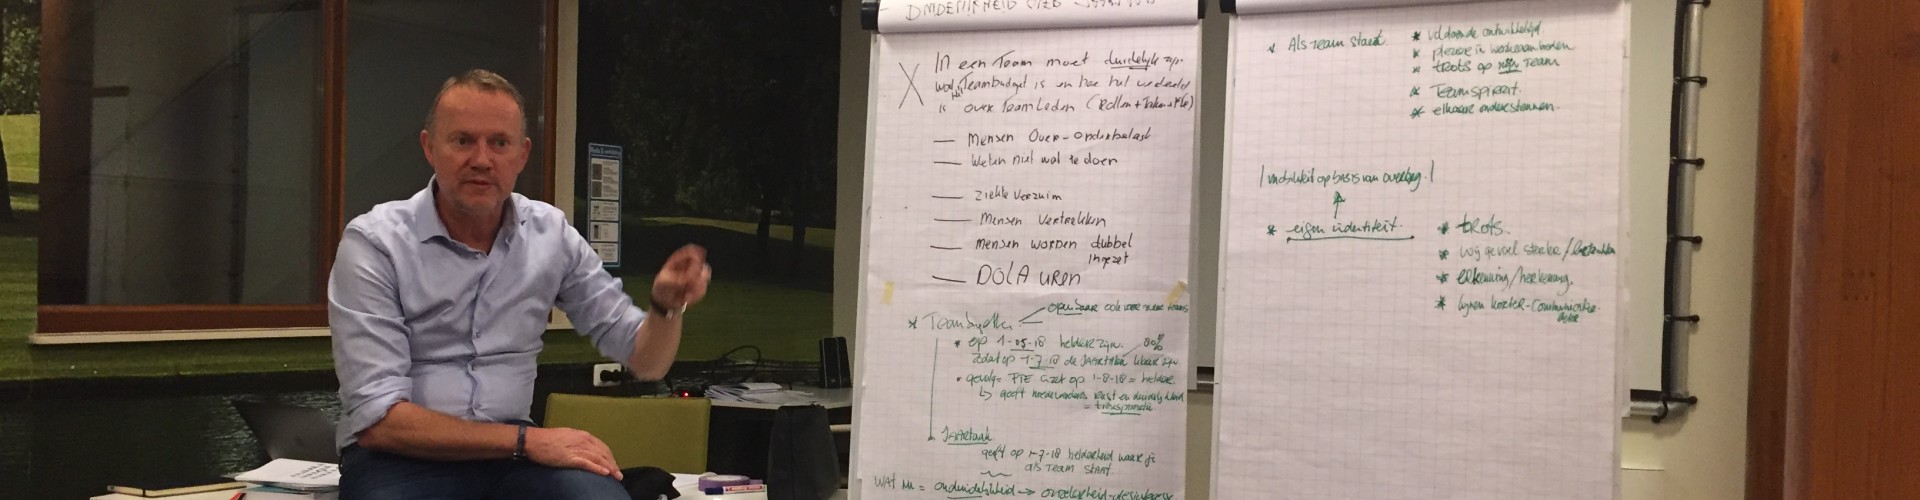 DUIDELIJKHEID
In een Team moet duidelijk zijn.
wat Teambudget is en hoe het verdeeld
is over Teamleden (Rollen + Taken +
— Mensen Over-onderbelast
— Weten niet wat te doen
— Ziekte verzuim
— Mensen Vertrekken
— Mensen worden dubbel
ingezet
— DOLA uren
openbaar ook voor teams
* Team
* op 1-05-18 helder zijn. 80%
zodat op 1-7-18 de jaartaken klaar zijn
• gevolg = FTE inzet op 1-8-18 = helder
↳ geeft rust en duidelijkheid
= transparantie
Jaartaak
geeft op 1-7-18 helderheid waar je
als Team staat.
WAT NU = onduidelijkheid →
* Als team staat.
* voldoende ontwikkeltijd
* plezier in werkzaamheden
* trots op mijn Team
* Teamspirit.
* elkaar ondersteunen.
/ mobiliteit op basis van overleg. /
* eigen identiteit.
* trots.
* wij gevoel sterker /
* erkenning/herkenning.
* lijnen korter - communicatie